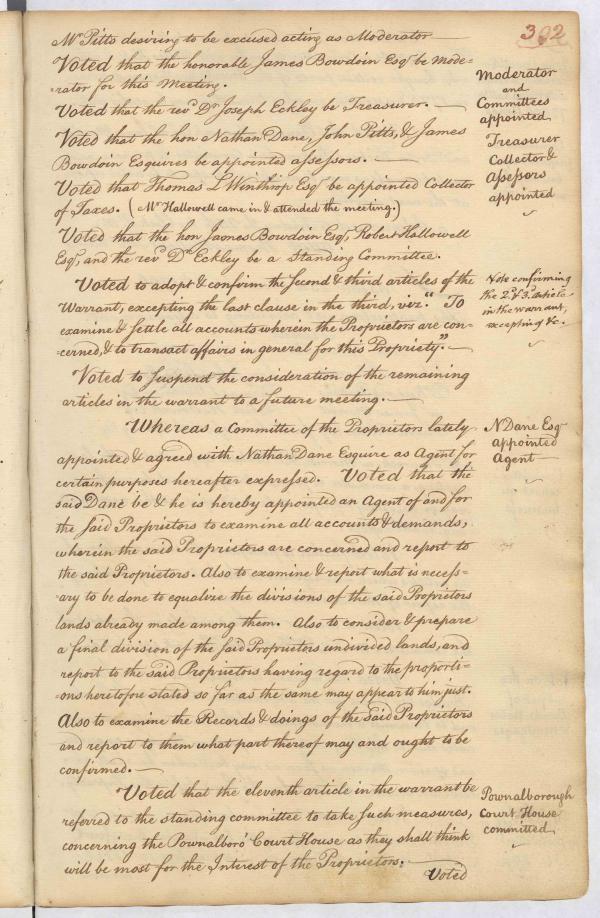 302
Mr Pitts desiring to be excused acting as Moderator —
Voted that the honorable James Bowdoin Esqr be Mode=
rator for this Meeting.
Voted that the revd Dr Joseph Eckley be Treasurer. —
Voted that the hon Nathan Dane, John Pitts, & James
Bowdoin Esquires be appointed assessors. —
Voted that Thomas L Winthrop Esqr be appointed Collector
of Taxes. (Mr Hallowell came in & attended the meeting.)
Voted that the hon James Bowdoin Esqr, Robert Hallowell
Esqr, and the revd Dr Eckley be a Standing Committee.
Moderator
and
Committees
appointed
Treasurer
Collector &
Assessors
appointed
Voted to adopt & confirm the second & third articles of the
Warrant, excepting the last clause in the third, viz. "To
examine & settle all accounts wherein the Proprietors are con=
cerned, & to transact affairs in general for this Propriety". —
Vote confirming
the 2d & 3d article
in the warrant,
excepting &c.
Voted to suspend the consideration of the remaining
articles in the warrant to a future meeting. —
Whereas a Committee of the Proprietors lately
appointed & agreed with Nathan Dane Esquire as Agent for
certain purposes hereafter expressed. Voted that the
said Dane be & he is hereby appointed an Agent of and for
the said Proprietors to examine all accounts & demands,
wherein the said Proprietors are concerned and report to
the said Proprietors. Also to examine & report what is necess=
ary to be done to equalize the divisions of the said Proprietors
lands already made among them. Also to consider & prepare
a final division of the said Proprietors undivided lands, and
report to the said Proprietors having regard to the proporti=
ons heretofore stated so far as the same may appear to him just.
Also to examine the Records & doings of the said Proprietors
and report to them what part thereof may and ought to be
confirmed. —
N Dane Esqr
appointed
Agent —
Voted that the eleventh article in the warrant be
referred to the standing committee to take such measures,
concerning the Pownalboro' Court House as they shall think
will be most for the Interest of the Proprietors. —
Pownalborough
Court House
committed
Voted